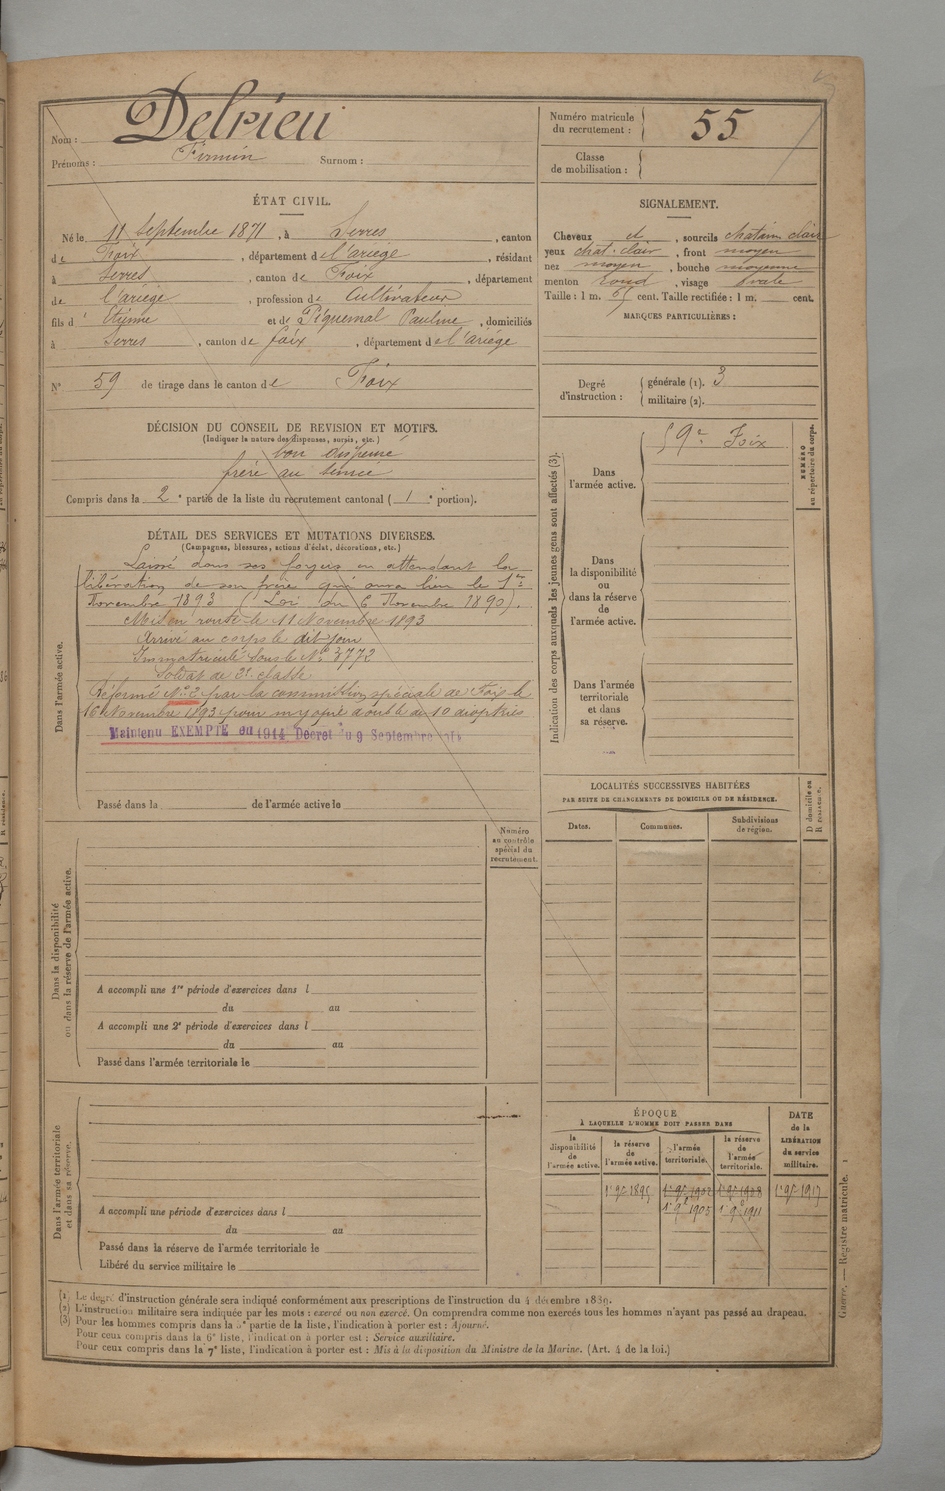 Nom : Delrieu
Prénoms : Firmin Surnom :
Numéro matricule du recrutement : 55
Classe de mobilisation :
ÉTAT CIVIL.
Né le 11 Septembre 1871, à Serres, canton
de Foix, département de l'ariège, résidant
à Serres, canton de Foix, département
de l'ariège, profession de Cultivateur
fils d' Etienne et de Piquemal Pauline, domiciliés
à Serres, canton de foix, département de l'ariége
N° 59 de tirage dans le canton de Foix
SIGNALEMENT.
Cheveux et, sourcils chatain clair
yeux chat. clair, front moyen
nez moyen, bouche moyenne
menton rond, visage ovale
Taille : 1 m. 65 cent. Taille rectifiée : 1 m. cent.
MARQUES PARTICULIÈRES :
Degré d'instruction : générale (1). 3
militaire (2).
DÉCISION DU CONSEIL DE REVISION ET MOTIFS.
(Indiquer la nature des dispenses, sursis, etc.)
bon dispensé
frère au service
Compris dans la 2e partie de la liste du recrutement cantonal ( 1e portion).
DÉTAIL DES SERVICES ET MUTATIONS DIVERSES.
(Campagnes, blessures, actions d'éclat, décorations, etc.)
Dans l'armée active.
Laissé dans ses foyers en attendant la
libération de son frère qui aura lieu le 1er
Novembre 1893 (Loi du 6 Novembre 1890).
Mis en route le 11 Novembre 1893
Arrivé au corps le dit jour
Immatriculé sous le N° 3772
Soldat de 2e classe
Réformé N° 2 par la commission spéciale de Foix le
16 Novembre 1893 pour myopie double de 10 dioptries
Maintenu EXEMPTÉ en 1914 Décret du 9 Septembre 1914
Passé dans la de l'armée active le
Indication des corps auxquels les jeunes gens sont affectés (3).
NUMÉRO au répertoire du corps.
Dans l'armée active.
59e Foix
Dans la disponibilité ou dans la réserve de l'armée active.
Dans l'armée territoriale et dans sa réserve.
LOCALITÉS SUCCESSIVES HABITÉES
PAR SUITE DE CHANGEMENTS DE DOMICILE OU DE RÉSIDENCE.
Dates. Communes. Subdivisions de région. D domicile ou R résidence.
Numéro au contrôle spécial du recrutement.
Dans la disponibilité ou dans la réserve de l'armée active.
A accompli une 1re période d'exercices dans l
du au
A accompli une 2e période d'exercices dans l
du au
Passé dans l'armée territoriale le
Dans l'armée territoriale et dans sa réserve.
A accompli une période d'exercices dans l
du au
Passé dans la réserve de l'armée territoriale le
Libéré du service militaire le
ÉPOQUE
À LAQUELLE L'HOMME DOIT PASSER DANS
la disponibilité de l'armée active. la réserve de l'armée active. l'armée territoriale. la réserve de l'armée territoriale. DATE de la LIBÉRATION du service militaire.
1er 9bre 1895 1er 9bre 1902 1er 9bre 1908 1er 9bre 1917
1er 9bre 1905 1er 9bre 1911
(1) Le degré d'instruction générale sera indiqué conformément aux prescriptions de l'instruction du 4 décembre 1889.
(2) L'instruction militaire sera indiquée par les mots : exercé ou non exercé. On comprendra comme non exercés tous les hommes n'ayant pas passé au drapeau.
(3) Pour les hommes compris dans la 5e partie de la liste, l'indication à porter est : Ajourné.
Pour ceux compris dans la 6e liste, l'indication à porter est : Service auxiliaire.
Pour ceux compris dans la 7e liste, l'indication à porter est : Mis à la disposition du Ministre de la Marine. (Art. 4 de la loi.)
Guerre. — Registre matricule. 1